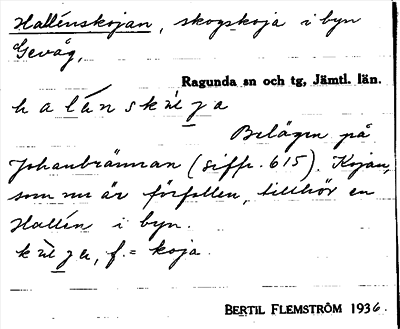 Hallénskojan, skogskoja i byn
Gevåg,
Ragunda sn och tg, Jämtl. län.
halánskùlja
Belägen på
Johanbrännan (siffr. 615). Kojan,
som nu är förfallen, tillhör en
Hallén i byn.
kùlja, f. = koja.
BERTIL FLEMSTRÖM 1936.